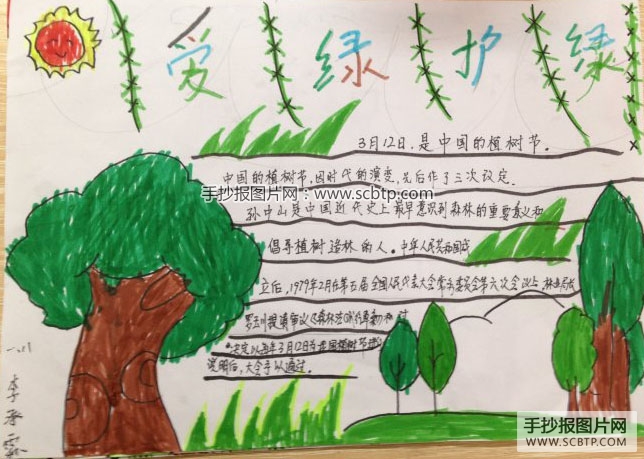 爱绿护绿
3月12日,是中国的植树节。
中国的植树节,因时代的演变,先后作了三次改定。
手抄报图片网:www.scbtp.com
孙中山是中国近代史上最早意识到森林的重要意义和
倡导植树造林的人。中华人民共和国成
立后,1979年2月第五届全国人民代表大会常务委员会第六次会议上,林业局
提请审议
决定以每年3月12日为我国植树节
说明后,大会予以通过。
李承霖
手抄报图片网
WWW.SCBTP.COM